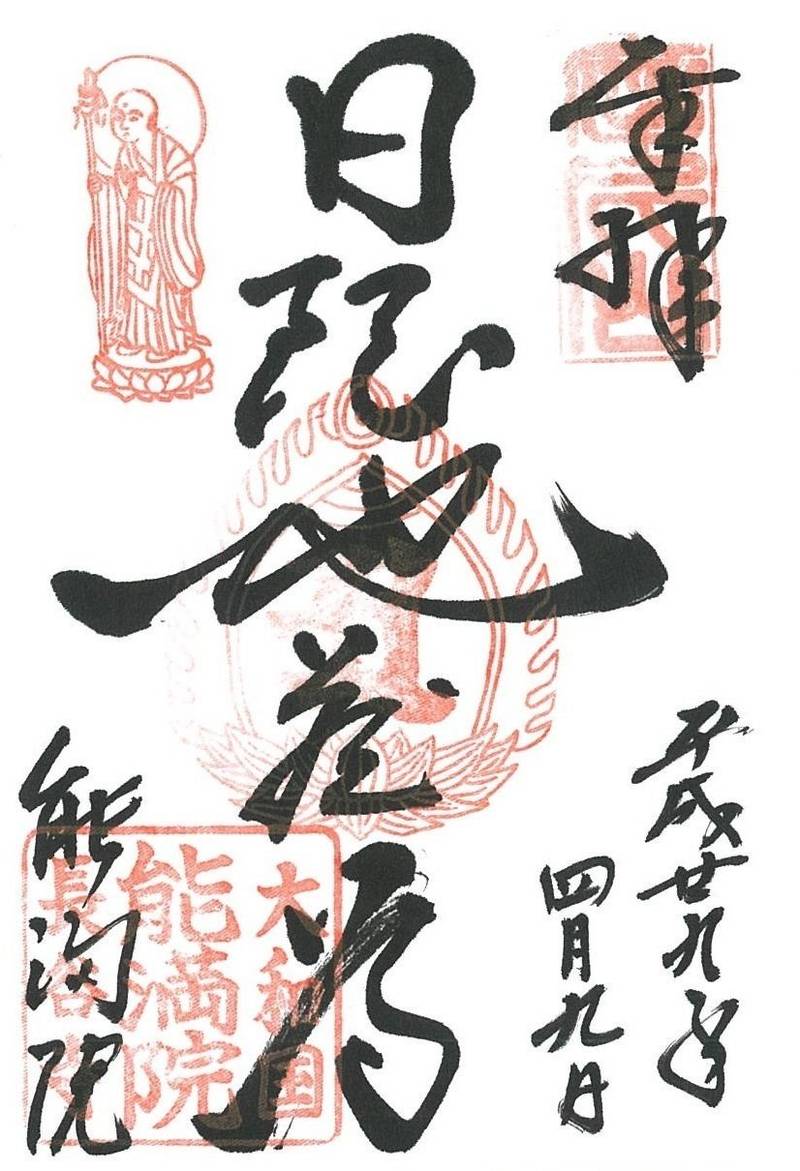 奉拝
平成廿九年
四月九日
日限地蔵尊
能満院
大和国
能満院
長谷寺